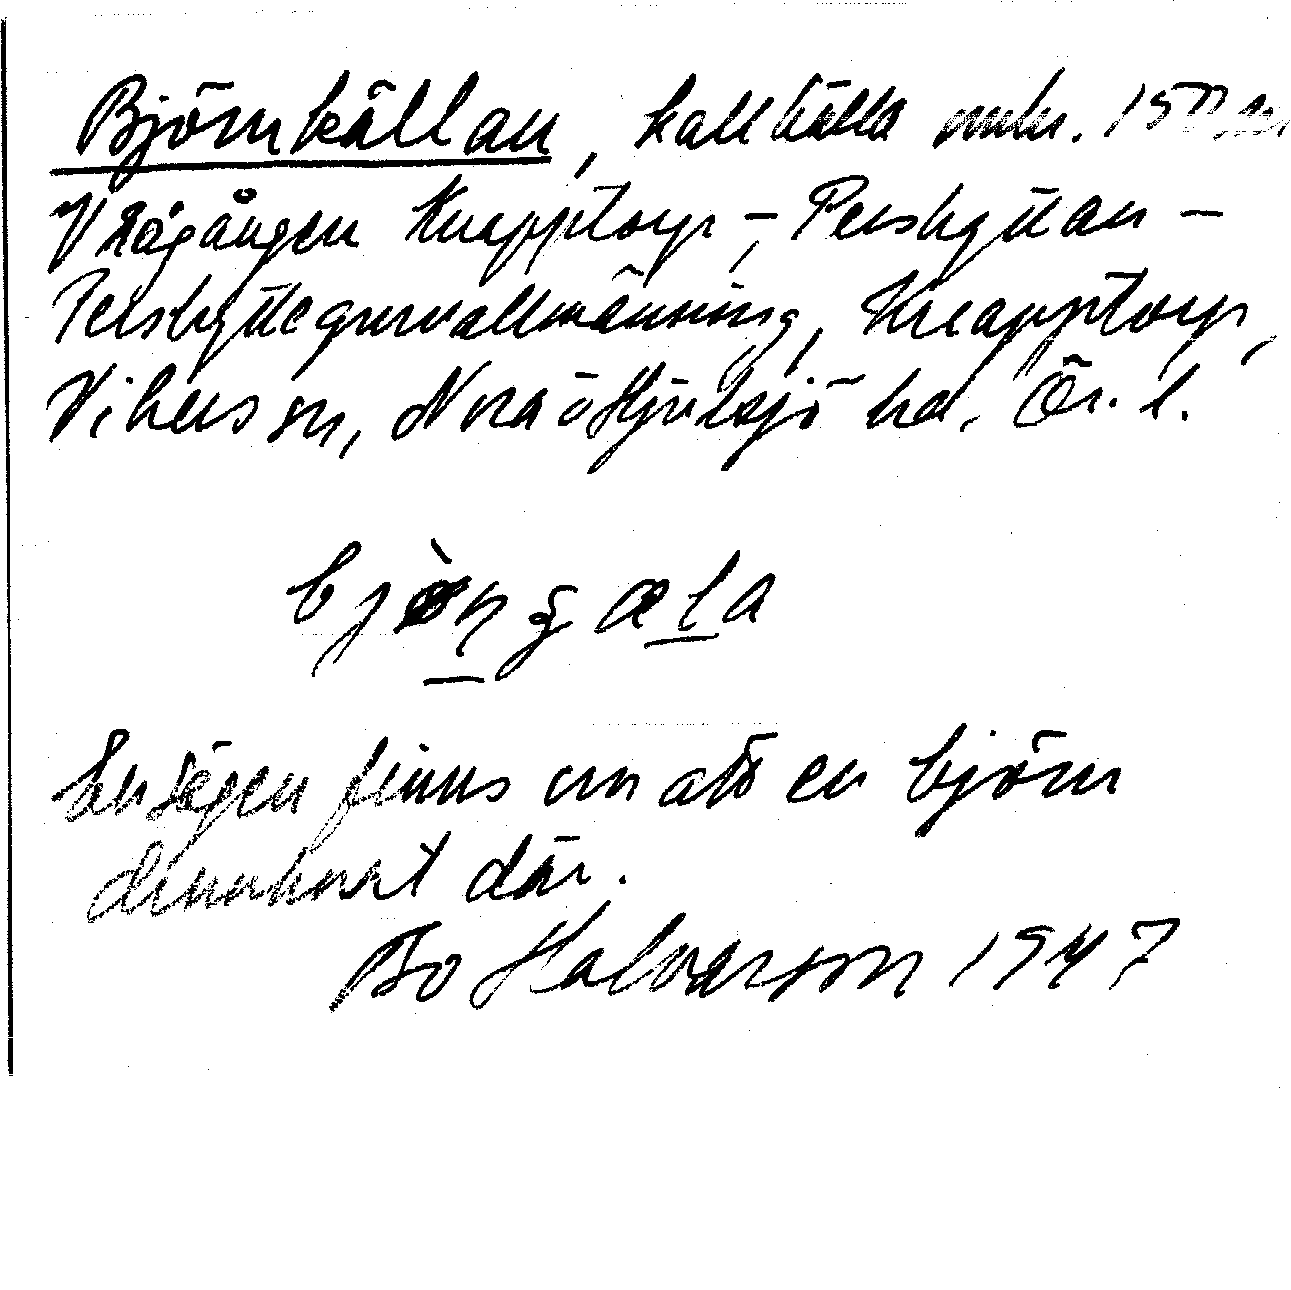 Björnkällan, kallkälla omkr. 150 m
V rågången Knapptorp – Pershyttan –
Pershyttegruvallmänning, Knapptorp,
Vikers sn, Nora o Hjulsjö hd, Ör. l.
En sägen finns om att en björn
drunknat där.
Bo Halvarson 1947